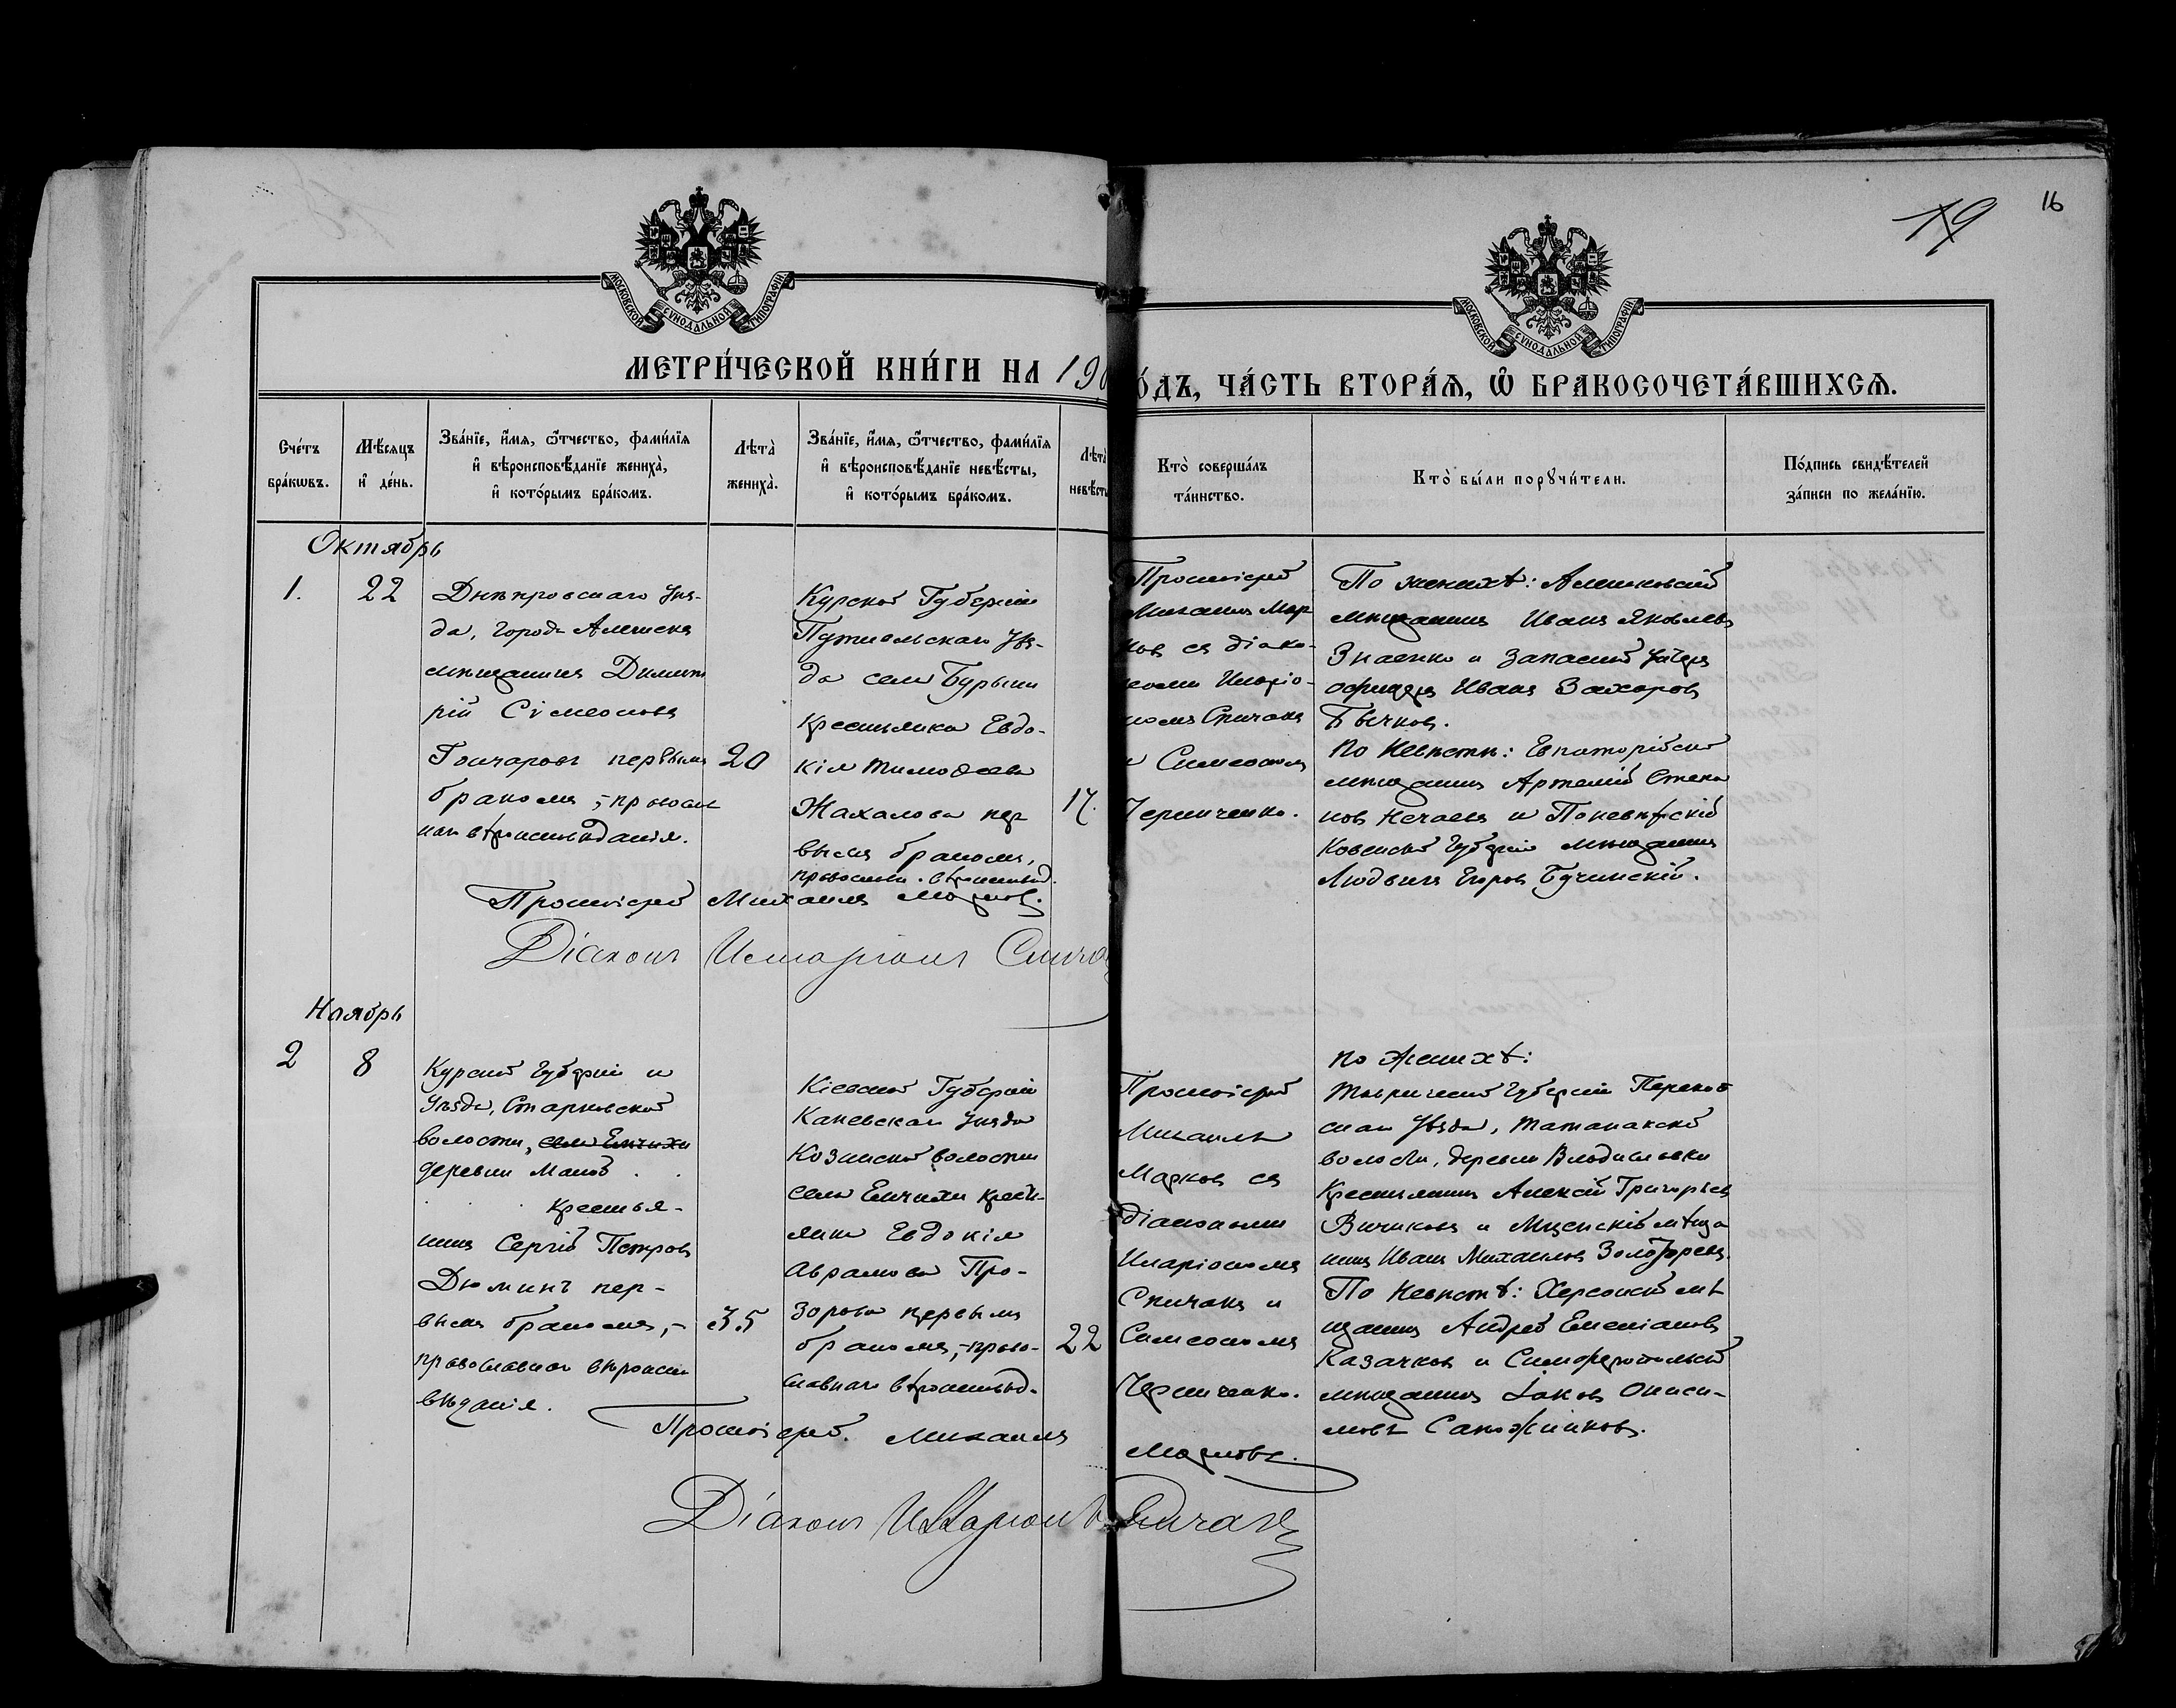 16
19
МОСКОВСКОЙ СѴНОДАЛЬНОЙ ТИПОГРАФІИ
МОСКОВСКОЙ СѴНОДАЛЬНОЙ ТИПОГРАФІИ
МЕТРИ́ЧЕСКОЙ КНИ́ГИ НА 190
О́ДЪ, ЧА́СТЬ ВТОРА́Ѧ, Ѽ БРАКОСОЧЕТА́ВШИХСѦ.
Сче́тъ
бра́кωвъ.
Мѣ́сяцъ
и҆ де́нь.
Зва́нїе, и҆́мя, ѻ҆́тчество, фами́лїя
и҆ вѣроисповѣ́данїе жениха̀,
и҆ кото́рымъ бра́комъ.
Лѣта̀
жениха̀.
Зва́нїе, и҆́мя, ѻ҆́тчество, фами́лїя
и҆ вѣроисповѣ́данїе невѣ́сты,
и҆ кото́рымъ бра́комъ.
Лѣта̀
невѣ́сты
Кто̀ соверша́лъ
та́инство.
Кто̀ бы́ли порꙋчи́тели.
По́дпись свидѣ́телей
за́писи по жела́нїю.
Октябрь
1.
22
Днѣпровскаго Уѣз-
да, города Алешекъ
мѣщанинъ Димит
рій Сѵмеоновъ
Гончаровъ первымъ
бракомъ, - правосл
наго вѣроисповѣданія.
20
Курской Губерніи
Путивльскаго Уѣз-
да села Бурыни
крестьянка Евдо-
кія Тимофеева
Жахалова пер
вымъ бракомъ,
православн. вѣроисповѣд.
17.
Протоіерей
Михаилъ Мар
ковъ съ діако-
номъ Иларіо-
номъ Спичакъ
и Симеономъ
Черниченко.
По женихѣ: Алешковскій
мѣщанинъ Иванъ Яковлевъ
Знаенко и запасной унтеръ
офицеръ Иванъ Захаровъ
Бычковъ.
По невѣстѣ: Евпаторійскій
мѣщанинъ Артемій Степа
новъ Нечаевъ и Поневѣжскій
Ковенской губерніи мѣщанинъ
Людвигъ Егоровъ Бучинскій.
Протоіерей Михаилъ Марковъ.
Діаконъ Иларіонъ Спичак
Ноябрь
2
8
Курской губерніи и
уѣзда, Старковской
волости, села Емчихи
деревни Маной
крестья-
нинъ Сергій Петровъ
Дюминъ пер-
вымъ бракомъ, -
православнаго вѣроиспо
вѣданія.
35
Кіевской Губерніи
Каневскаго Уѣзда
Козинской волости
села Емчихи крест-
янка Евдокія
Аврамова Про-
зорова первымъ
бракомъ, - право-
славнаго вѣроисповѣд.
22
Протоіерей
Михаилъ
Марковъ съ
діакономъ
Иларіономъ
Спичакъ и
Симеономъ
Черниченко.
По женихѣ:
Таврической губерніи Перекоп
скаго Уѣзда, Татанакской
волости, деревни Владиславки
крестьянинъ Алексѣй Григорьев
Вичиковъ и Мценскій мѣща
нинъ Иванъ Михаиловъ Золотаревъ.
По невѣстѣ: Херсонскій мѣ
щанинъ Андрей Емеліановъ
Казачковъ и Симферопольскій
мѣщанинъ Іаковъ Ониси-
мовъ Сапожниковъ.
Протоіерей Михаилъ Марковъ.
Діаконъ Иларіонъ Спичакъ